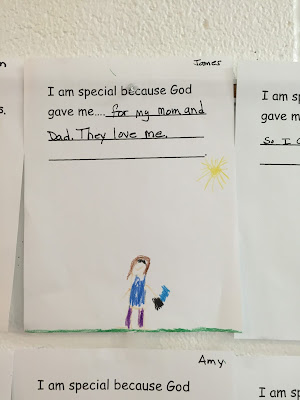 n
James
I am special because God
gave me.... for my mom and
Dad. They love me.
s.
I am sp
gave m
So I c
Amy
I am special because God
I am sp